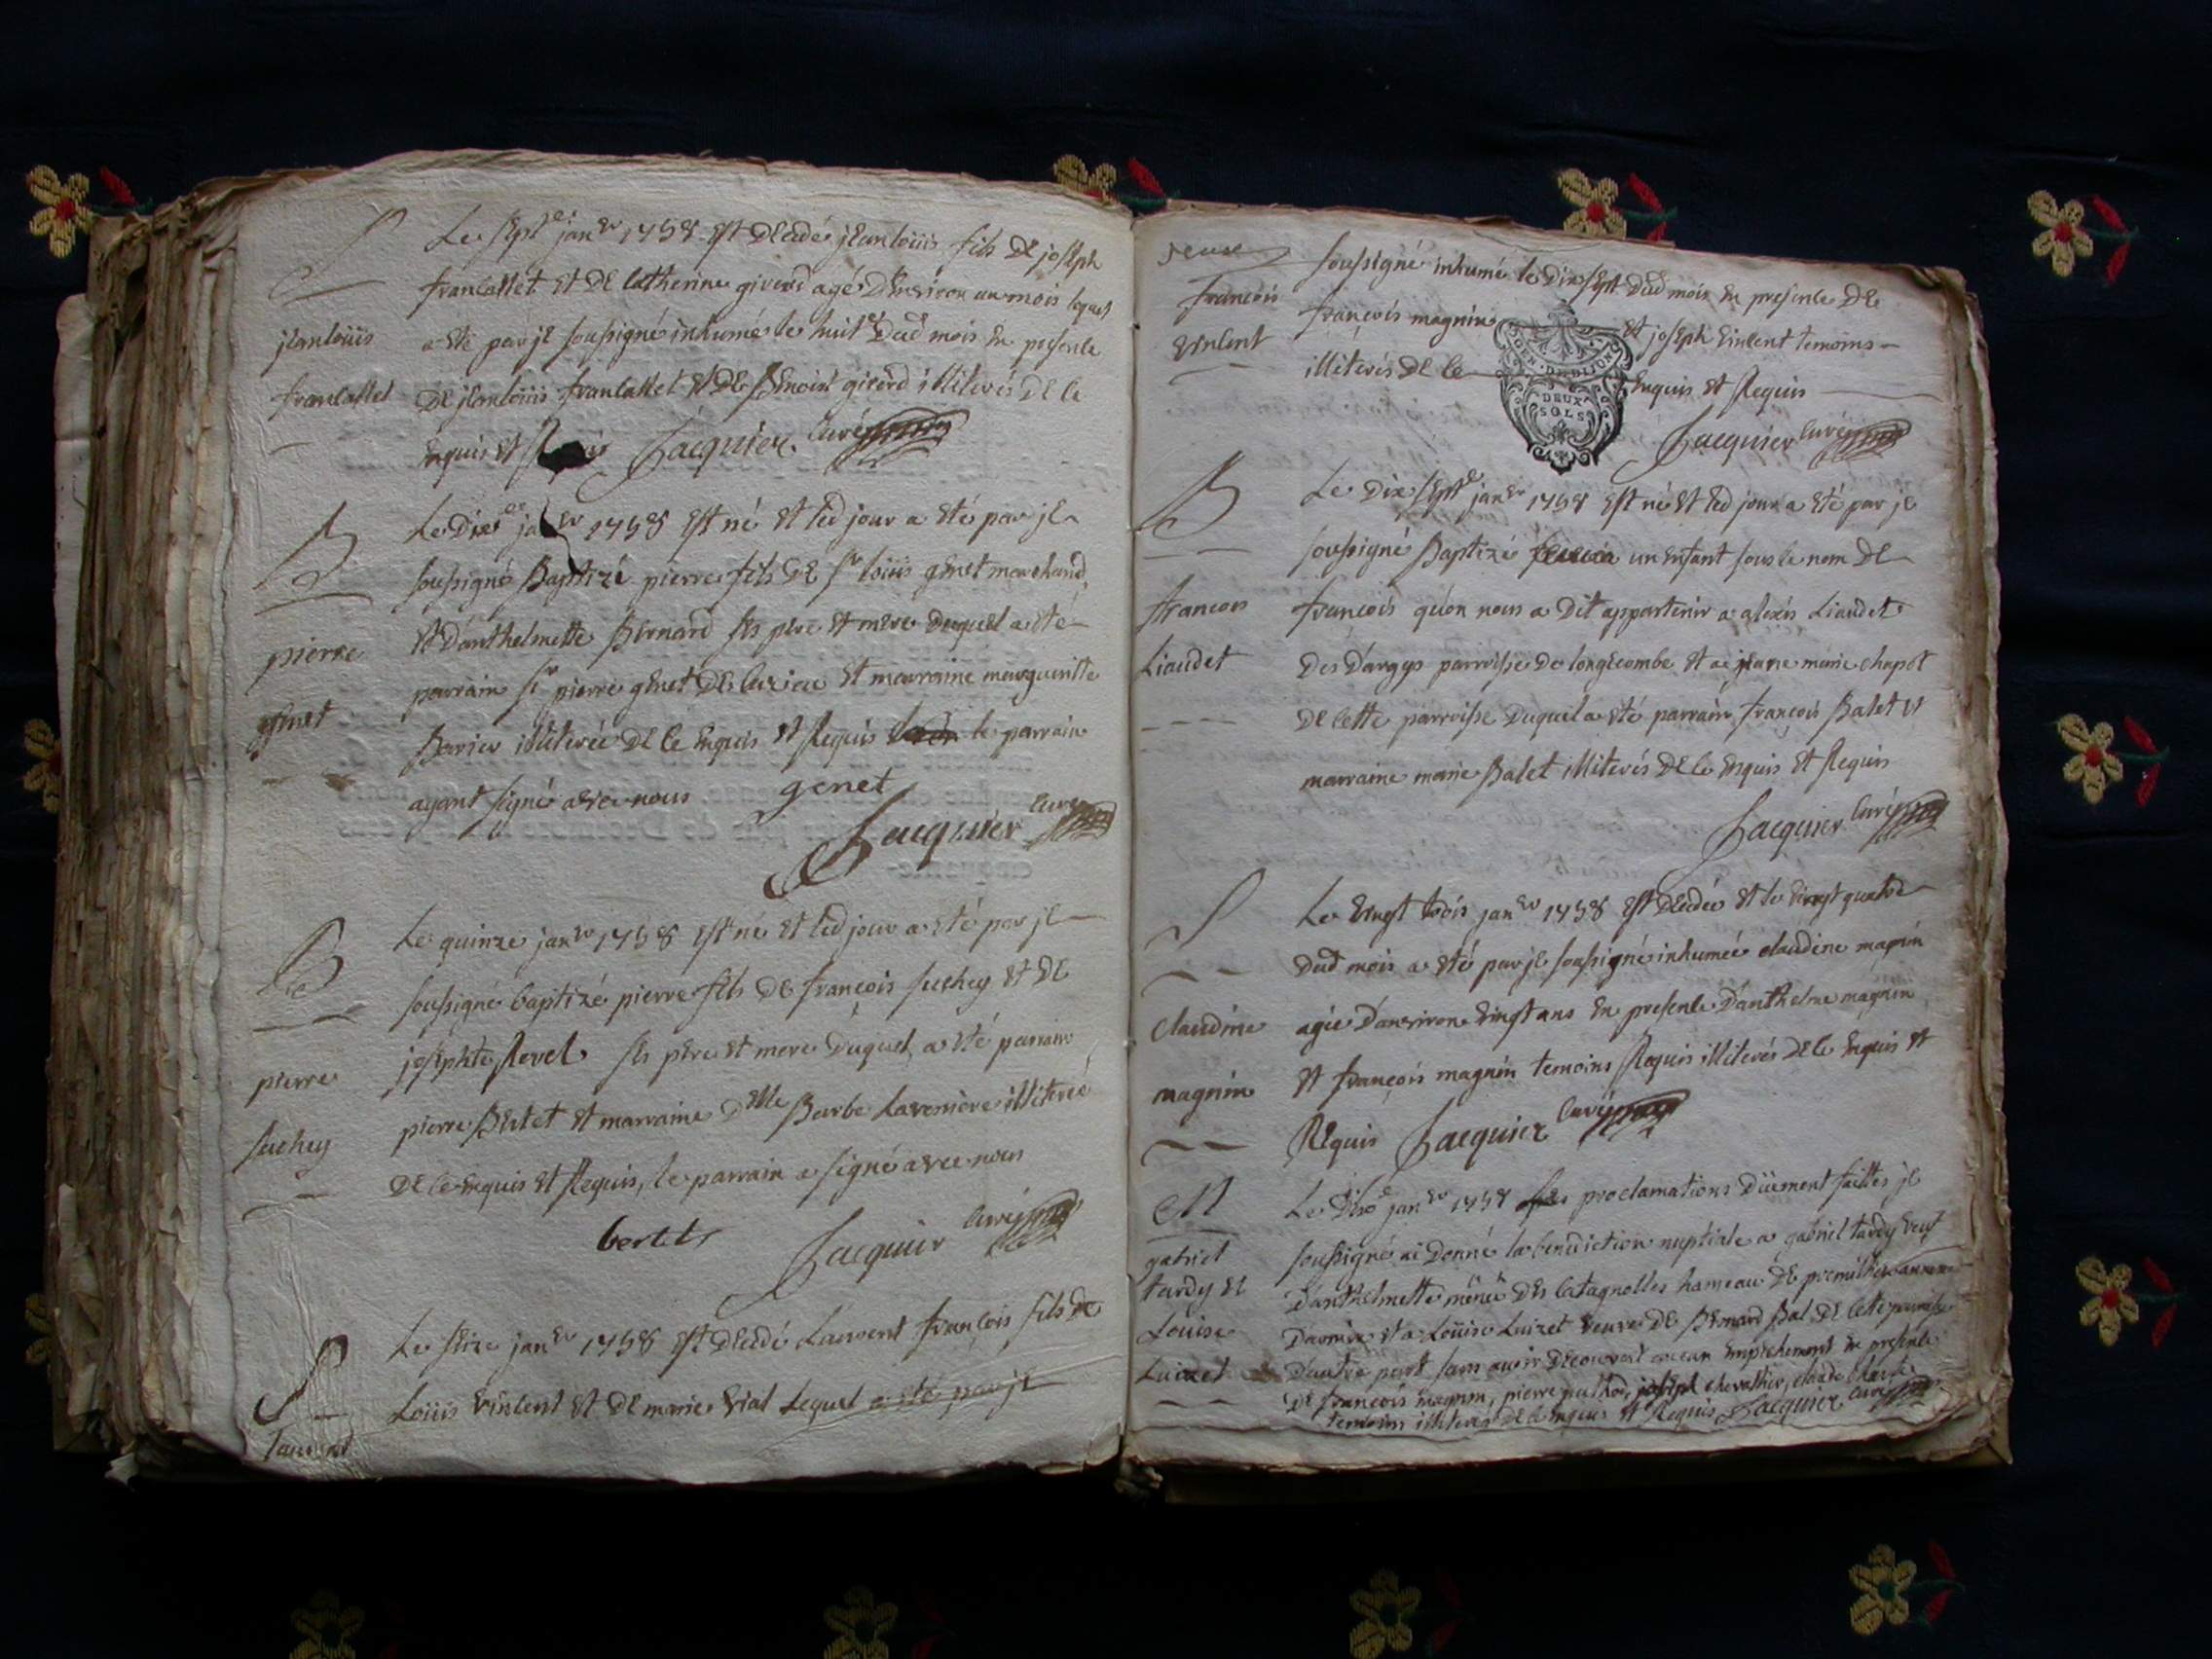 S
Le sept janer 1758 est decedé jeanloüis fils de joseph
francallet et de catherine girerd agé d'environ un mois lequel
jeanloüis
a été par je soussigné inhumé le huit dud mois en presence
francallet
de jeanloüis francallet et de Benoist girerd illiterés de ce
enquis et Requis Jacquier curé
B
Le Dix janer 1758 est né et led jour a été par je
soussigné Baptizé pierre fils de sr loüis genet marchand
et d'anthelmette Bernard ses pere et mere duquel a été
pierre
parrain sr pierre genet de ceuzieu et marraine margueritte
genet
Barrier illiterée de ce enquis et Requis le parrain
ayant signé avec nous genet
Jacquier curé
B
Le quinze janer 1758 est né et led jour a été par je
soussigné baptizé pierre fils de françois juchey et de
josephte Revel ses pere et mere duquel a été parrain
pierre
pierre Bertet et marraine Delle Barbe Laveniere illiterée
juchey
de ce enquis et Requis, le parrain a signé avec nous
bertet
Jacquier curé
S
Le seize janer 1758 est decedé Laurent françois fils de
Loüis vincent et de marie vial Lequel a été par je
laurent
soussigné inhumé le Dix sept dud mois en presence de
francois
françois magnin et joseph vincent temoins
vincent
illiterés de ce enquis et Requis
GEN. DE DIJON
DEUX
SOLS
Jacquier curé
B
Le Dix sept janer 1758 est né et led jour a été par je
soussigné Baptizé un enfant sous le nom de
francois
françois qu'on nous a dit appartenir a alexis Liaudet
Liaudet
des d'argys parroisse de longecombe et a jeane marie chapot
de cette parroisse duquel a été parrain françois Balet et
marraine marie Balet illiterés de ce enquis et Requis
Jacquier curé
S
Le vingt trois janer 1758 est decedée et le vingt quatre
dud mois a été par je soussigné inhumée claudine magnin
claudine
agée d'environ vingt ans en presence d'anthelme magnin
magnin
et françois magnin temoins Requis illiterés de ce enquis et
Requis Jacquier curé
M
Le janer 1758 les proclamations düement faittes je
gabriel
soussigné ai donné la benediction nuptiale a gabriel tardy veuf
tardy et
d'anthelmette des catagnolles hameau de
Louise
d'une et a Loüise Luizet veuve de Bernard Bal de cette parroisse
Luizet
d'autre part sans avoir decouvert aucun empechement en presence
de françois magnin, pierre joseph chevallier, claude
temoins illiterés de ce enquis et Requis Jacquier curé